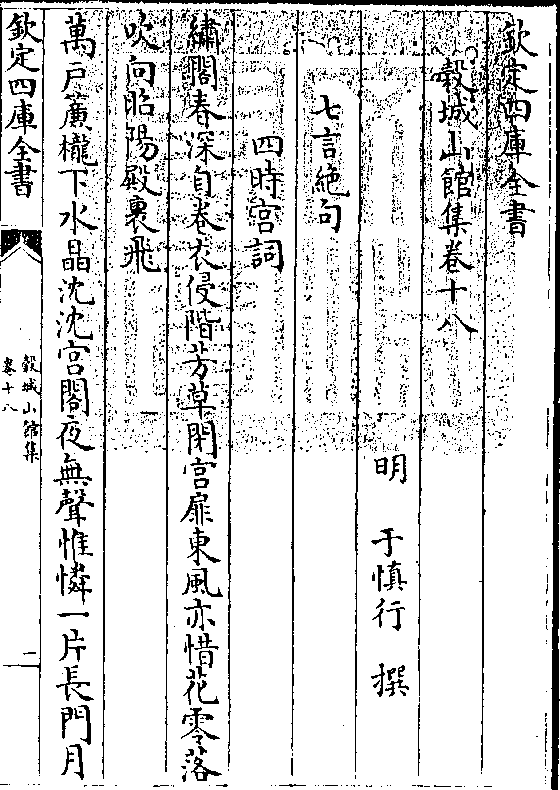 欽定四庫全書
穀城山館集卷十八
明 于慎行 撰
七言絶句
四時宫詞
繡閣春深自卷衣侵階芳草閉宫扉東風亦惜花零落
吹向昭陽殿裏飛
萬戸簾櫳下水晶沈沈宫閣夜無聲惟憐一片長門月
欽定四庫全書
穀城山館集
卷十八
一